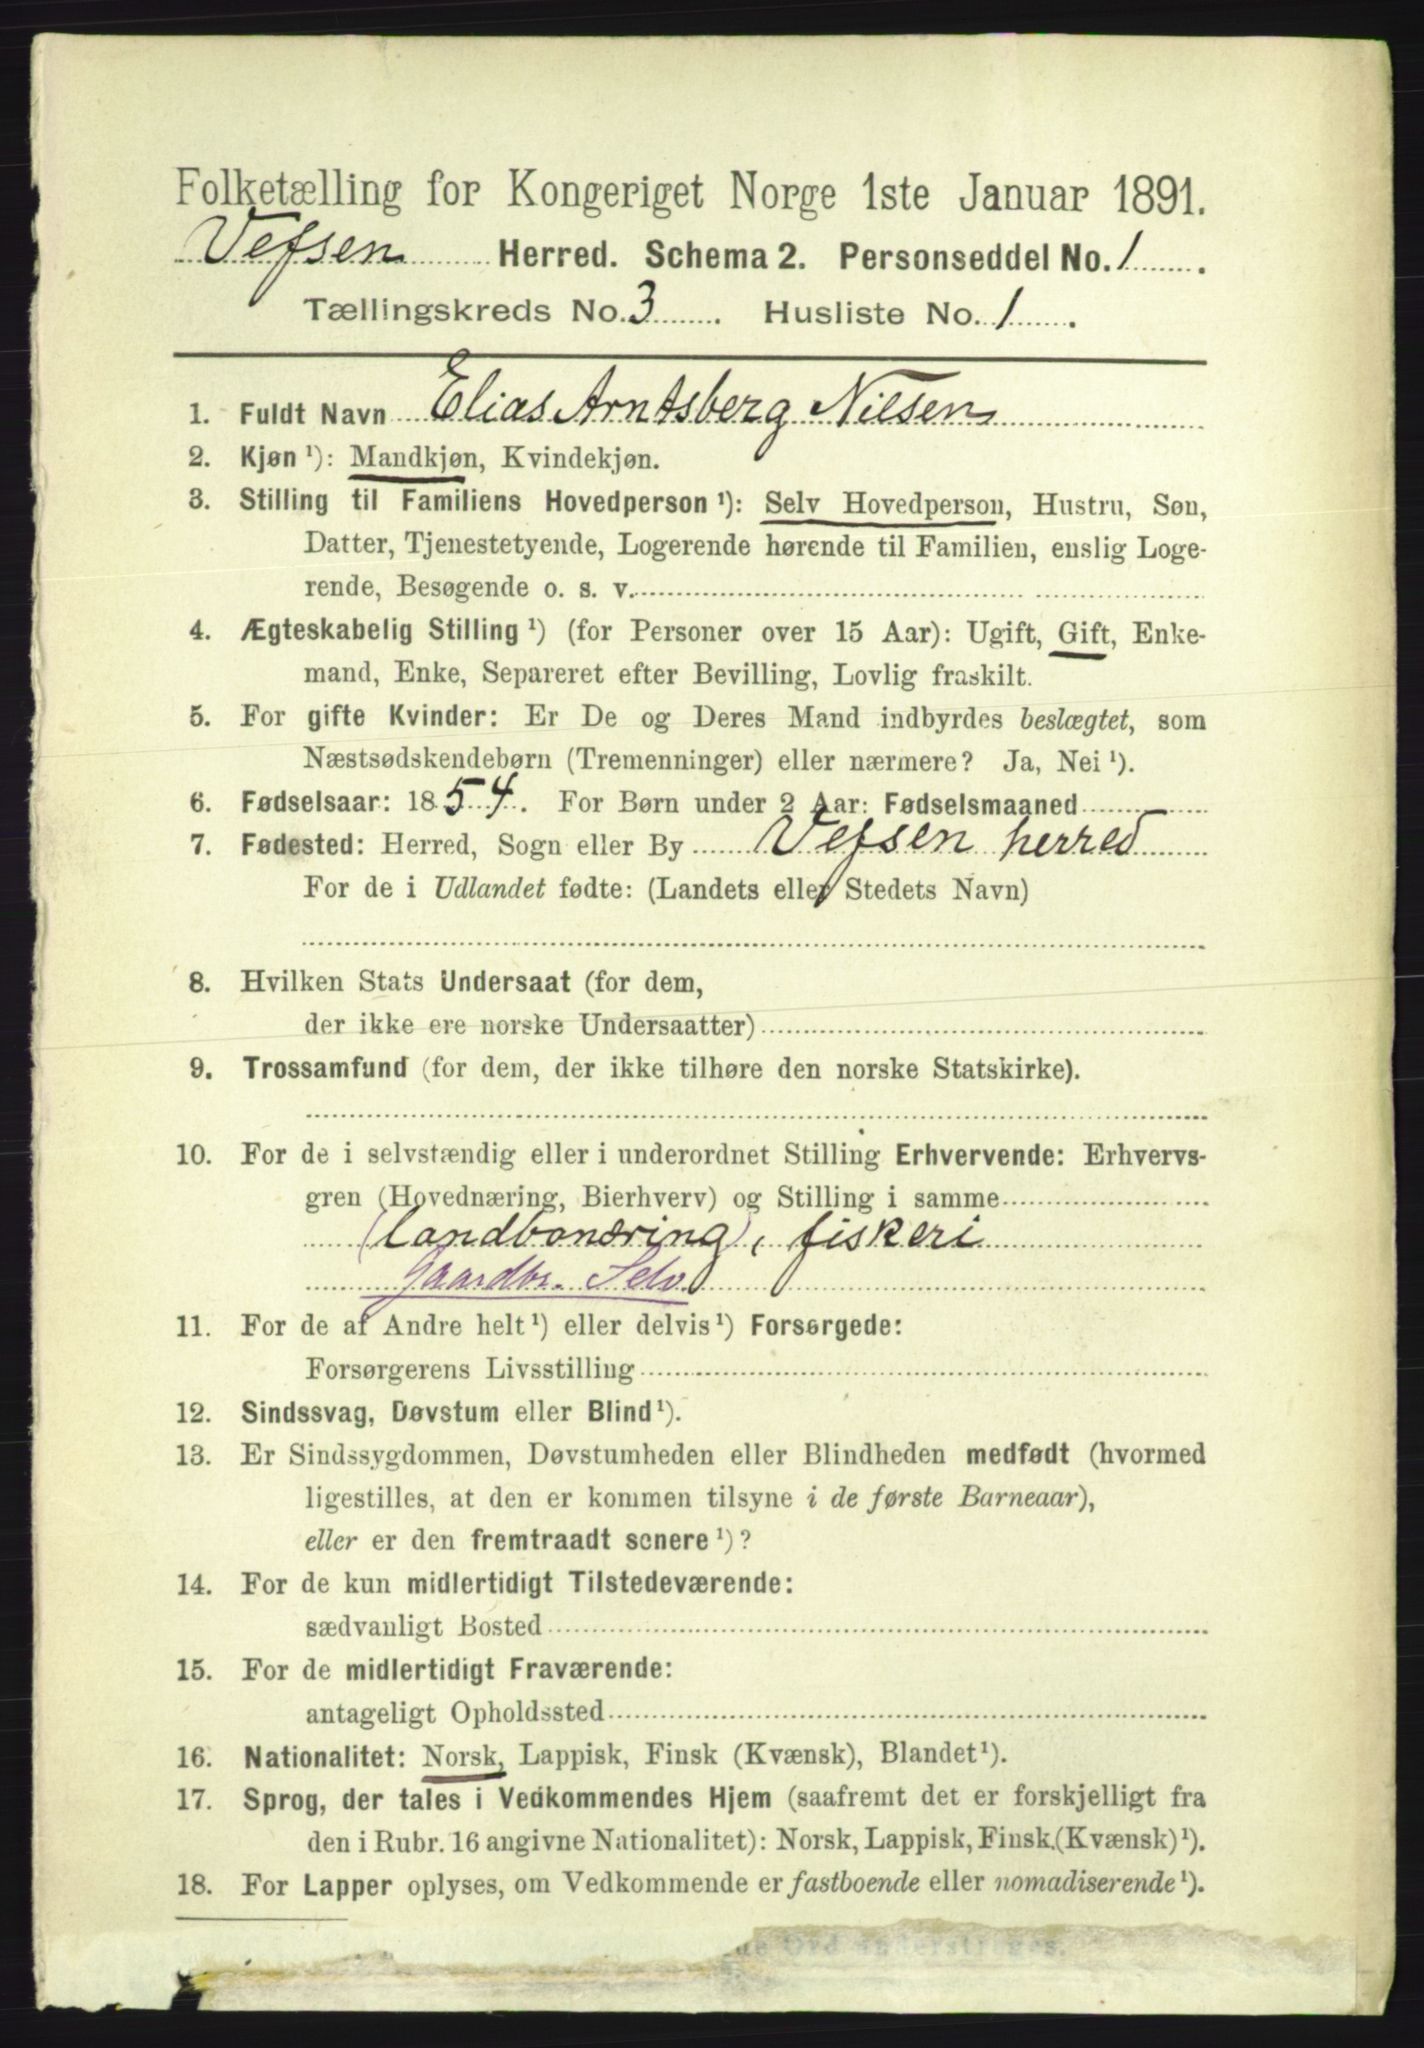 Folketælling for Kongeriget Norge 1ste Januar 1891.
Vefsen Herred. Schema 2. Personseddel No. 1.
Tællingskreds No. 3. Husliste No. 1.
1. Fuldt Navn Elias Arntsberg Nilsen
2. Kjøn ¹): Mandkjøn, Kvindekjøn.
3. Stilling til Familiens Hovedperson ¹): Selv Hovedperson, Hustru, Søn,
Datter, Tjenestetyende, Logerende hørende til Familien, enslig Loge-
rende, Besøgende o. s. v.
4. Ægteskabelig Stilling ¹) (for Personer over 15 Aar): Ugift, Gift, Enke-
mand, Enke, Separeret efter Bevilling, Lovlig fraskilt.
5. For gifte Kvinder: Er De og Deres Mand indbyrdes beslægtet, som
Næstsødskendebørn (Tremenninger) eller nærmere? Ja, Nei ¹).
6. Fødselsaar: 1854. For Børn under 2 Aar: Fødselsmaaned
7. Fødested: Herred, Sogn eller By Vefsen herred
For de i Udlandet fødte: (Landets eller Stedets Navn)
8. Hvilken Stats Undersaat (for dem,
der ikke ere norske Undersaatter)
9. Trossamfund (for dem, der ikke tilhøre den norske Statskirke).
10. For de i selvstændig eller i underordnet Stilling Erhvervende: Erhvervs-
gren (Hovednæring, Bierhverv) og Stilling i samme
(landbonæring), fiskeri
Gaardbr. Selv.
11. For de af Andre helt ¹) eller delvis ¹) Forsørgede:
Forsørgerens Livsstilling
12. Sindssvag, Døvstum eller Blind ¹).
13. Er Sindssygdommen, Døvstumheden eller Blindheden medfødt (hvormed
ligestilles, at den er kommen tilsyne i de første Barneaar),
eller er den fremtraadt senere ¹)?
14. For de kun midlertidigt Tilstedeværende:
sædvanligt Bosted
15. For de midlertidigt Fraværende:
antageligt Opholdssted
16. Nationalitet: Norsk, Lappisk, Finsk (Kvænsk), Blandet ¹).
17. Sprog, der tales i Vedkommendes Hjem (saafremt det er forskjelligt fra
den i Rubr. 16 angivne Nationalitet): Norsk, Lappisk, Finsk.(Kvænsk) ¹).
18. For Lapper oplyses, om Vedkommende er fastboende eller nomadiserende ¹).
Ord understreges.